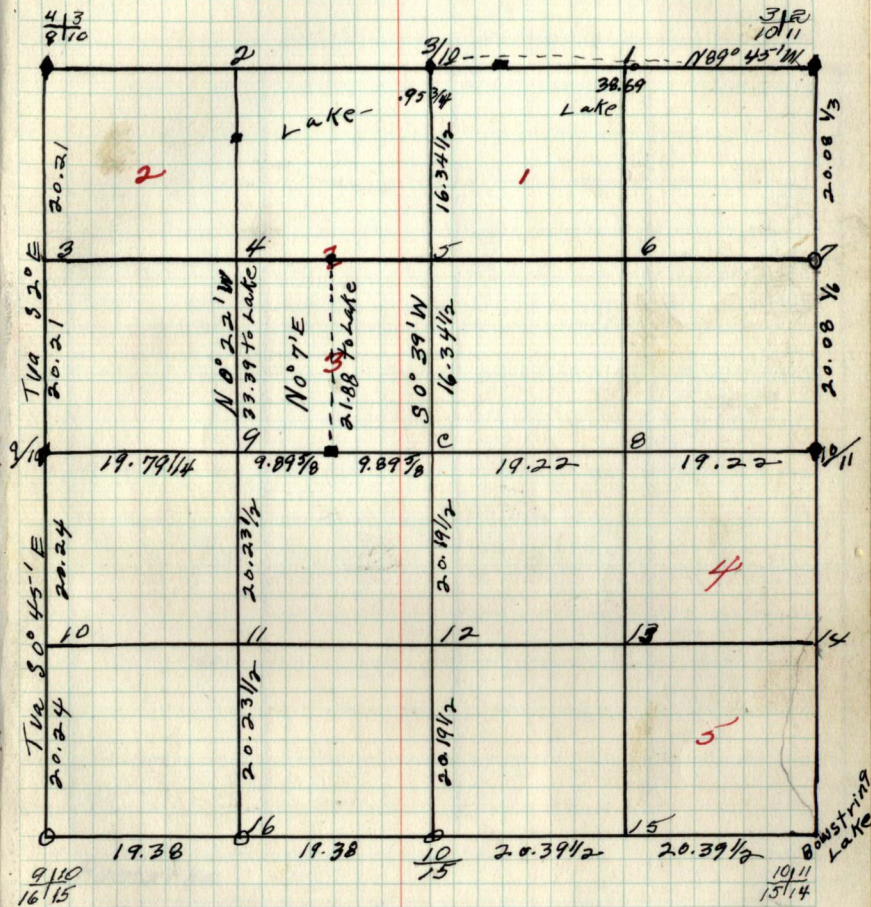 4 3
9 10
3 2
10 11
2
3/10
1
N89° 45' W
.95 3/4
38.69
Lake
Lake
20.21
2
16.34 1/2
1
20.08 1/3
3
4
5
6
7
Tva S 2° E
20.21
N 0° 22' W
33.39 to Lake
N 0° 7' E
3
21.88 to Lake
S 0° 39' W
16.34 1/2
20.08 1/6
9/10
9
C
8
10/11
19.79 1/4
9.89 5/8
9.89 5/8
19.22
19.22
Tva S 0° 45' E
20.24
20.23 1/2
20.19 1/2
4
10
11
12
13
14
20.24
20.23 1/2
20.19 1/2
5
16
15
Bowstring
Lake
19.38
19.38
10
15
20.39 1/2
20.39 1/2
9 10
16 15
10 11
15 14